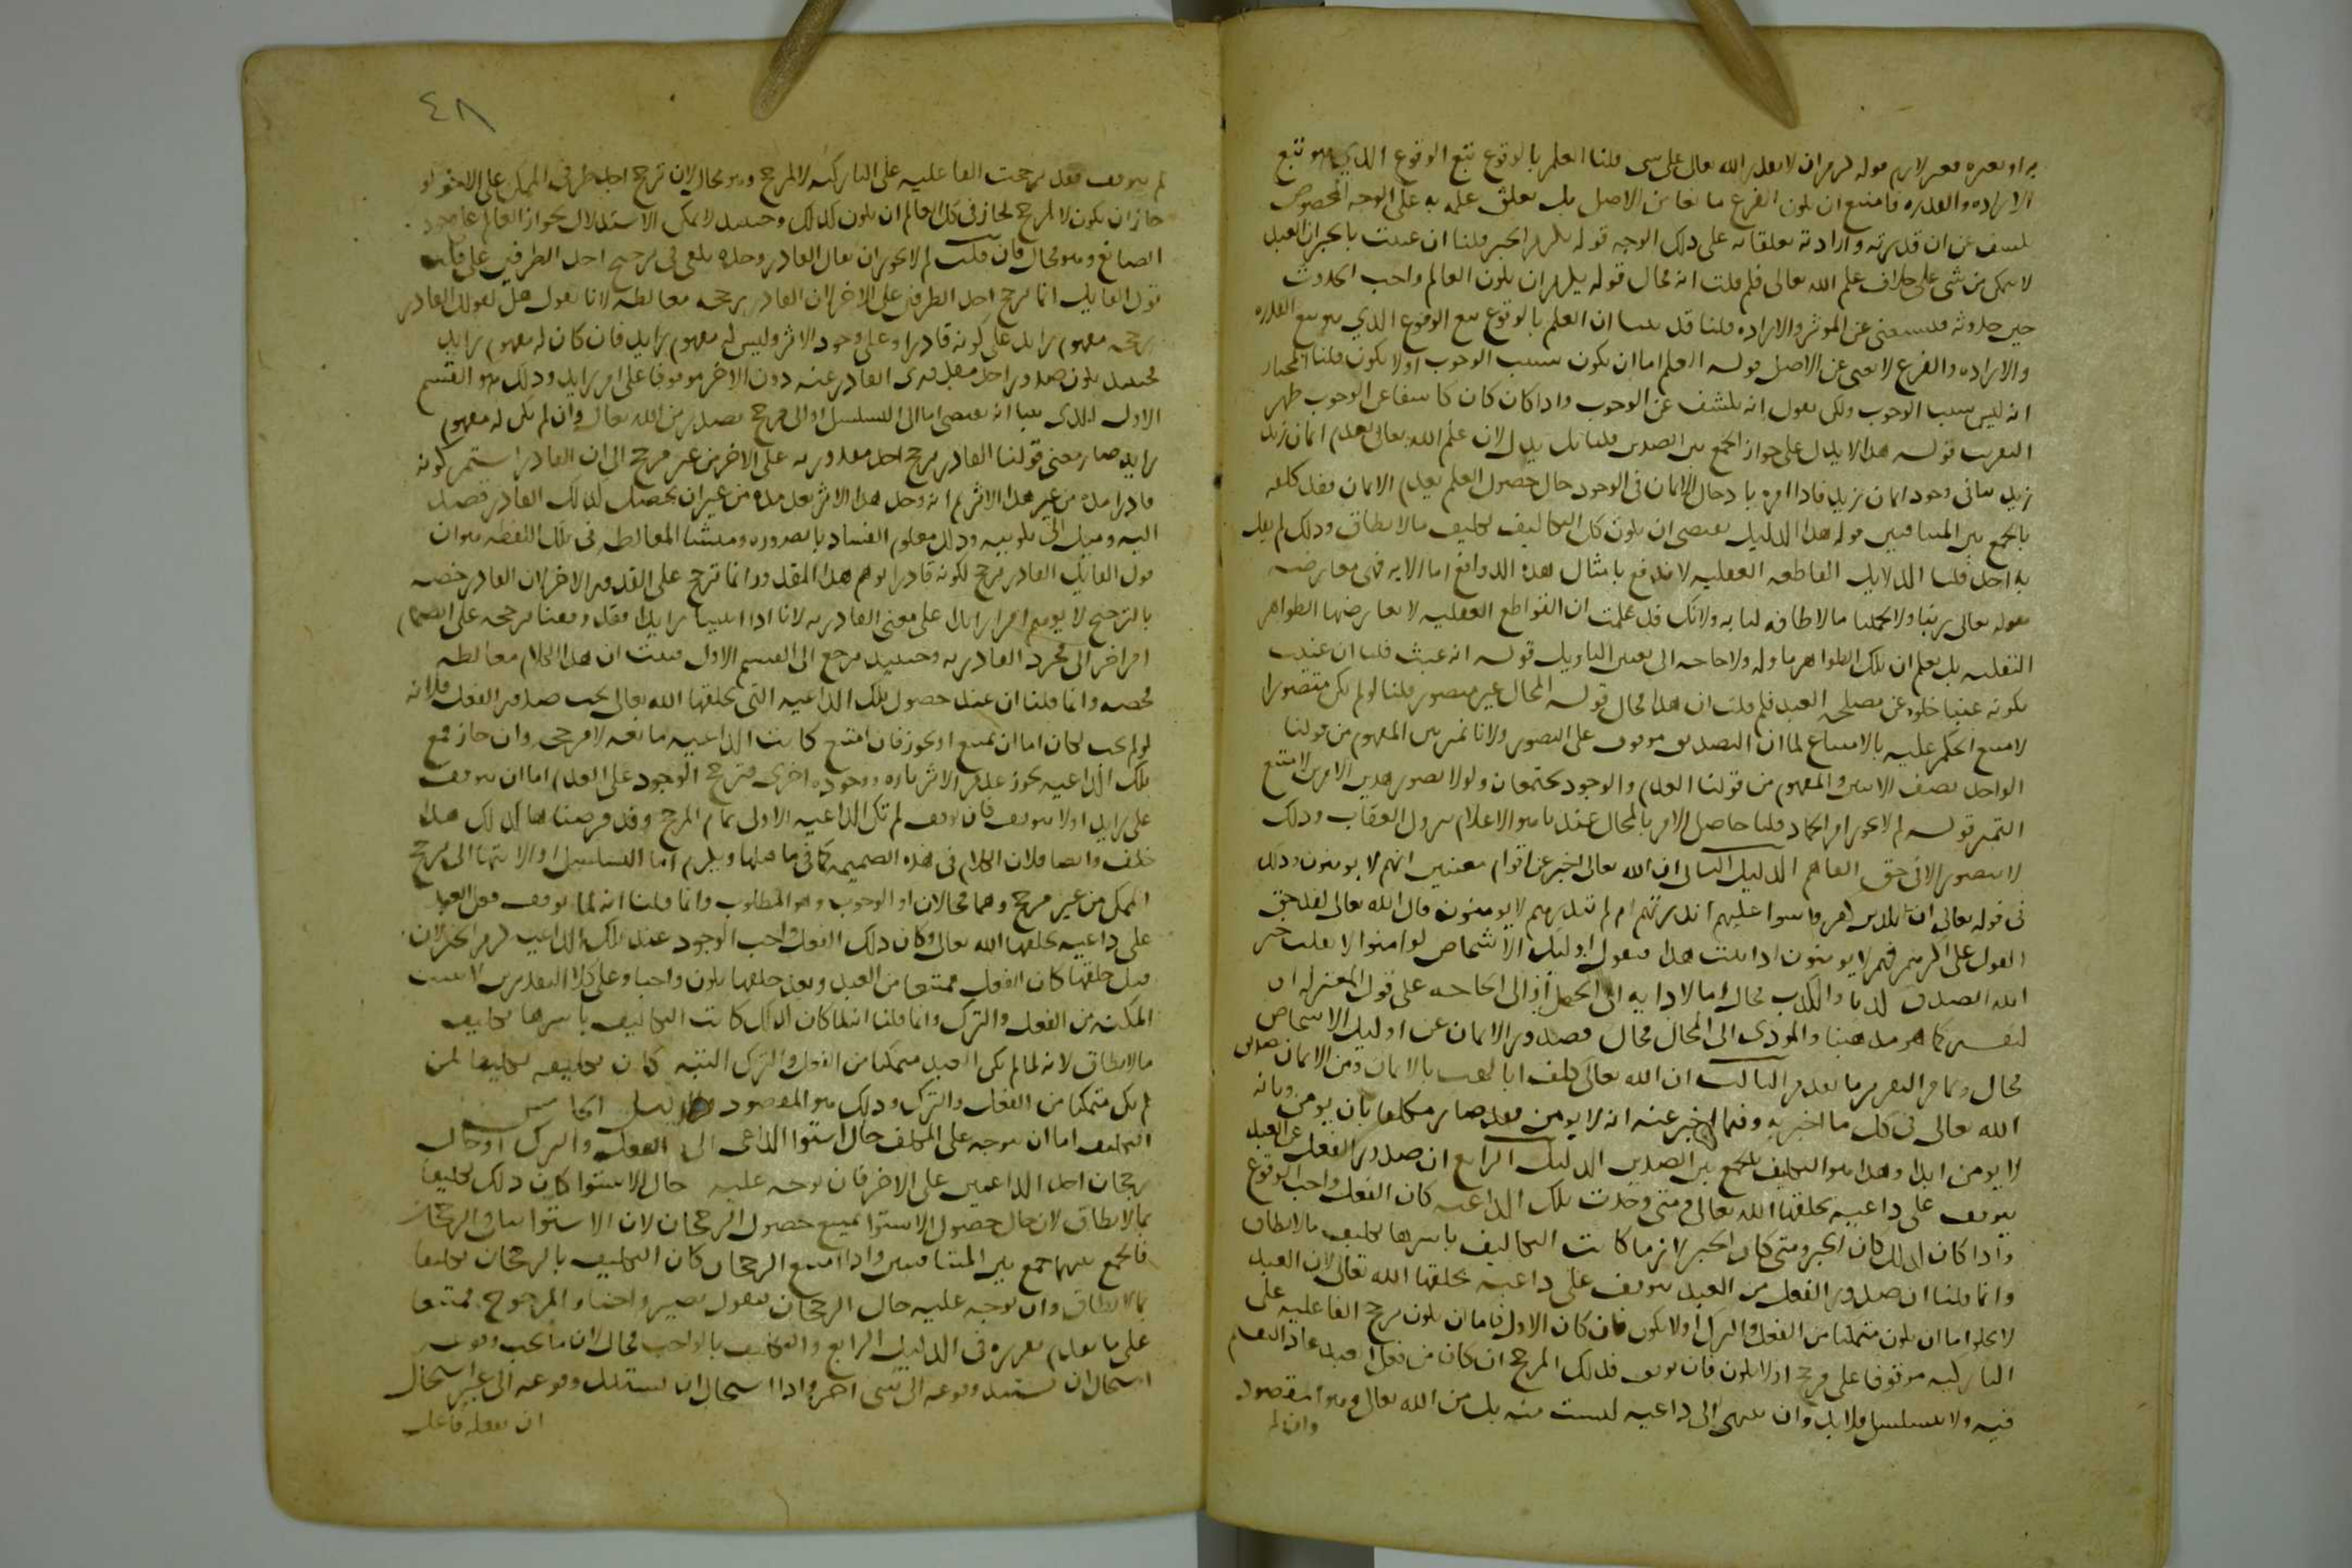 به او بغيره فغير لازم قوله لزم ان لا يقدر الله تعالى على شى قلنا العلم بالوقوع تبع الوقوع الذي هو تبع
الاراده والقدره فامتنع ان يكون الفرع مانعا من الاصل بل تعلق علمه به على الوجه المخصوص
يكشف عن ان قدرته وارادته تعلقا به على ذلك الوجه قوله يلزم الجبر قلنا ان عنيت بالجبر ان العبد
لا يتمكن من شى على خلاف علم الله تعالى فلم قلت انه محال قوله يلزم ان يكون العالم واجب الحدوث
حين حدوثه فيستغنى عن الموثر والاراده قلنا قد بينا ان العلم بالوقوع تبع الوقوع الذي هو تبع القدره
والاراده والفرع لا يغنى عن الاصل قوله العلم اما ان يكون سبب الوجوب او لا يكون قلنا المختار
انه ليس سبب الوجوب ولكن نقول انه يكشف عن الوجوب واذا كان كاشفا عن الوجوب ظهر
الفرق قوله هذا لا يدل على جواز الجمع بين الضدين قلنا بل يدل لان علم الله تعالى بعدم ايمان زيد
زيد ينافى وجود ايمان زيد فاذا امره بادخال الايمان فى الوجود حال حصول العلم بعدم الايمان فقد كلفه
بالجمع بين المتنافيين قوله هذا الدليل يقتضى ان يكون كل التكاليف تكليف ما لا يطاق وذلك لم يقل
به احد قلنا الدلايل القاطعه العقليه لا تندفع بامثال هذه الدوافع اما الايه فهى معارضه
بقوله تعالى ربنا ولا تحملنا ما لا طاقه لنا به ولانك قد علمت ان القواطع العقليه لا يعارضها الظواهر
النقليه بل يعلم ان تلك الظواهر ماوله ولا حاجه الى تعيين التاويل قوله انه عبث قلنا ان عنيت
بكونه عبثا خلوه عن مصلحه العبد فلم قلت ان هذا محال قوله المحال غير متصور قلنا لو لم يكن متصورا
لامتنع الحكم عليه بالامتناع لما ان التصديق موقوف على التصور ولانا نميز بين المفهوم من قولنا
الواحد نصف الاثنين والمفهوم من قولنا العدم والوجود يجتمعان ولولا تصور هذين الامرين لامتنع
التميز قوله لم لا يجوز امر الجماد قلنا حاصل الامر بالمحال عندنا هو الاعلام بنزول العقاب وذلك
لا يتصور الا فى حق الفاهم الدليل الثانى ان الله تعالى اخبر عن اقوام معينين انهم لا يومنون وذلك
فى قوله تعالى ان الذين كفروا سوا عليهم انذرتهم ام لم تنذرهم لا يومنون قال الله تعالى لقد حق
القول على اكثرهم فهم لا يومنون اذا ثبت هذا فنقول اوليك الاشخاص لو امنوا لانقلب خبر
الله الصدق كذبا والكذب محال اما لادايه الى الجهل او الى الحاجه على قول المعتزله او
لنفسه كما هو مذهبنا والمودى الى المحال محال فصدور الايمان عن اوليك الاشخاص
محال وتمام التقرير ما تقدم الثالث ان الله تعالى كلف ابا لهب بالايمان ومن الايمان تصديق
الله تعالى فى كل ما اخبر به ومما اخبر عنه انه لا يومن فقد صار مكلفا بان يومن وبانه
لا يومن ابدا وهذا هو التكليف بالجمع بين الضدين الدليل الرابع ان صدور الفعل عن العبد
يتوقف على داعيه يخلقها الله تعالى ومتى وجدت تلك الداعيه كان الفعل واجب الوقوع
واذا كان كذلك كان الجبر ومتى كان الجبر لازما كانت التكاليف باسرها تكليف ما لا يطاق
وانما قلنا ان صدور الفعل من العبد يتوقف على داعيه يخلقها الله تعالى لان العبد
لا يخلو اما ان يكون متمكنا من الفعل والترك او لا يكون فان كان الاول فاما ان يكون ترجح الفاعليه على
التاركيه موقوفا على مرجح او لا يكون فان توقف فذلك المرجح ان كان من فعل العبد عاد التقسيم
فيه ولا يتسلسل فلا بد وان ينتهى الى داعيه ليست منه بل من الله تعالى وهو المقصود
وان لم
٤٨
لم يتوقف فقد ترجحت الفاعليه على التاركيه لا لمرجح وهو محال لان ترجح احد طرفى الممكن على الاخر لو
جاز ان يكون لا لمرجح لجاز فى كل العالم ان يكون كذلك وحينيذ لا يمكن الاستدلال بجواز العالم على وجود
الصانع وهو محال فان قلت لم لا يجوز ان يقال القادر وحده يكفى فى ترجيح احد الطرفين على قلت
قول القايل انما ترجح احد الطرفين على الاخر لان القادر يرجحه مغالطه لانا نقول هل لقولك القادر
يرجحه مفهوم زايد على كونه قادرا وعلى وجود الاثر وليس له مفهوم زايد فان كان له مفهوم زايد
فحينيذ يكون صدور احد مقدورى القادر عنه دون الاخر موقوفا على امر زايد وذلك هو القسم
الاول الذى بينا انه يفضى اما الى التسلسل او الى مرجح يصدر من الله تعالى وان لم يكن له مفهوم
زايد صار معنى قولنا القادر يرجح احد مقدوريه على الاخر من غير مرجح الى ان القادر استمر كونه
قادرا مده من غير هذا الاثر ثم انه وجد هذا الاثر بعد مده من غير ان يحصل لذلك القادر قصد
اليه وميل الى تكوينه وذلك معلوم الفساد بالضروره ومنشا المغالطه فى تلك اللفظه هو ان
قول القايل القادر يرجح لكونه قادرا يوهم هذا المقدور انما ترجح على المقدور الاخر لان القادر خصه
بالترجيح لا يوهم امرا زايدا على معنى القادريه لانا اذا اثبتنا زايدا فقد وقفنا ترجحه على انضمام
امر اخر الى مجرد القادريه وحينيذ يرجع الى القسم الاول فثبت ان هذا الكلام مغالطه
محضه وانما قلنا ان عند حصول تلك الداعيه التى يخلقها الله تعالى يجب صدور الفعل فلانه
لو لم يجب لكان اما ان يمتنع او يجوز فان امتنع كانت الداعيه مانعه لا مرجحه وان جاز فمع
تلك الداعيه يجوز عدم الاثر تاره ووجوده اخرى فترجح الوجود على العدم اما ان يتوقف
على زايد او لا يتوقف فان توقف لم تكن الداعيه الاولى تمام المرجح وقد فرضناها كذلك هذا
خلف وايضا فلان الكلام فى هذه الضميمه كما فى ما قبلها ويلزم اما التسلسل او الانتها الى ترجح
الممكن من غير مرجح وهما محالان او الوجوب وهو المطلوب وانما قلنا انه لما توقف فعل العبد
على داعيه يخلقها الله تعالى وكان ذلك الفعل واجب الوجود عند تلك الداعيه لزم الجبر لان
قبل خلقها كان الفعل ممتنعا من العبد وبعد خلقها يكون واجبا وعلى كلا التقديرين لا تثبت
المكنه من الفعل والترك وانما قلنا انه لما كان كذلك كانت التكاليف باسرها تكليف
ما لا يطاق لانه لما لم يكن العبد متمكنا من الفعل والترك البته كان تكليفه تكليفا لمن
لم يكن متمكنا من الفعل والترك وذلك هو المقصود الدليل الخامس
التكليف اما ان يتوجه على المكلف حال استوا الداعى الى الفعل والترك او حال
رجحان احد الداعيين على الاخر فان توجه عليه حال الاستوا كان ذلك تكليفا
بما لا يطاق لان حال حصول الاستوا يمتنع حصول الرجحان لان الاستوا ينافى الرجحان
فالجمع بينهما جمع بين المتنافيين واذا امتنع الرجحان كان التكليف بالرجحان تكليفا
بما لا يطاق وان توجه عليه حال الرجحان فنقول يصير واجبا والمرجوح ممتنعا
على ما تقدم تقريره فى الدليل الرابع والتكليف بالواجب محال لان ما يجب وقوعه
استحال ان يستند وقوعه الى شى اخر واذا استحال ان يستند وقوعه الى غيره استحال
ان يفعله فاعل